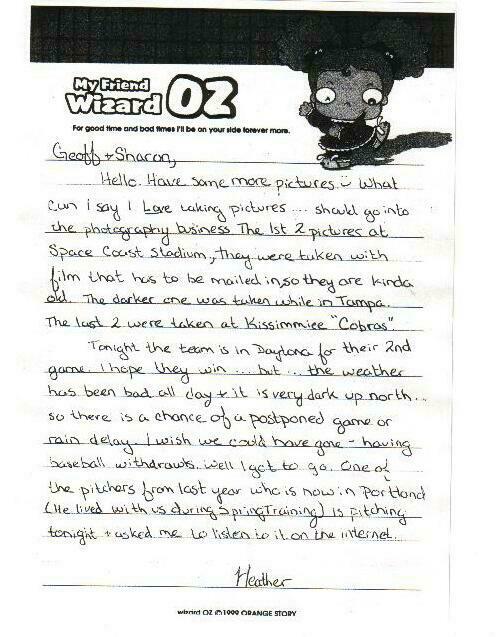 My Friend
Wizard OZ
For good time and bad times I'll be on your side forever more.
Geoff + Sharon,
Hello. Have some more pictures. What
can i say I Love taking pictures .... should go into
the photography business The 1st 2 pictures at
Space Coast Stadium, they were taken with
film that has to be mailed in, so they are kinda
old. The darker one was taken while in Tampa.
The last 2 were taken at Kissimmiee "Cobras".
Tonight the team is in Daytona for their 2nd
game. I hope they win ... but ... the weather
has been bad all day + it is very dark up north...
so there is a chance of a postponed game or
rain delay. I wish we could have gone - having
baseball withdrawls. Well I got to go. One of
the pitchers from last year who is now in Portland
(He lived with us during Spring Training) is pitching
tonight + asked me to listen to it on the internet.
Heather
wizard OZ ©1999 ORANGE STORY